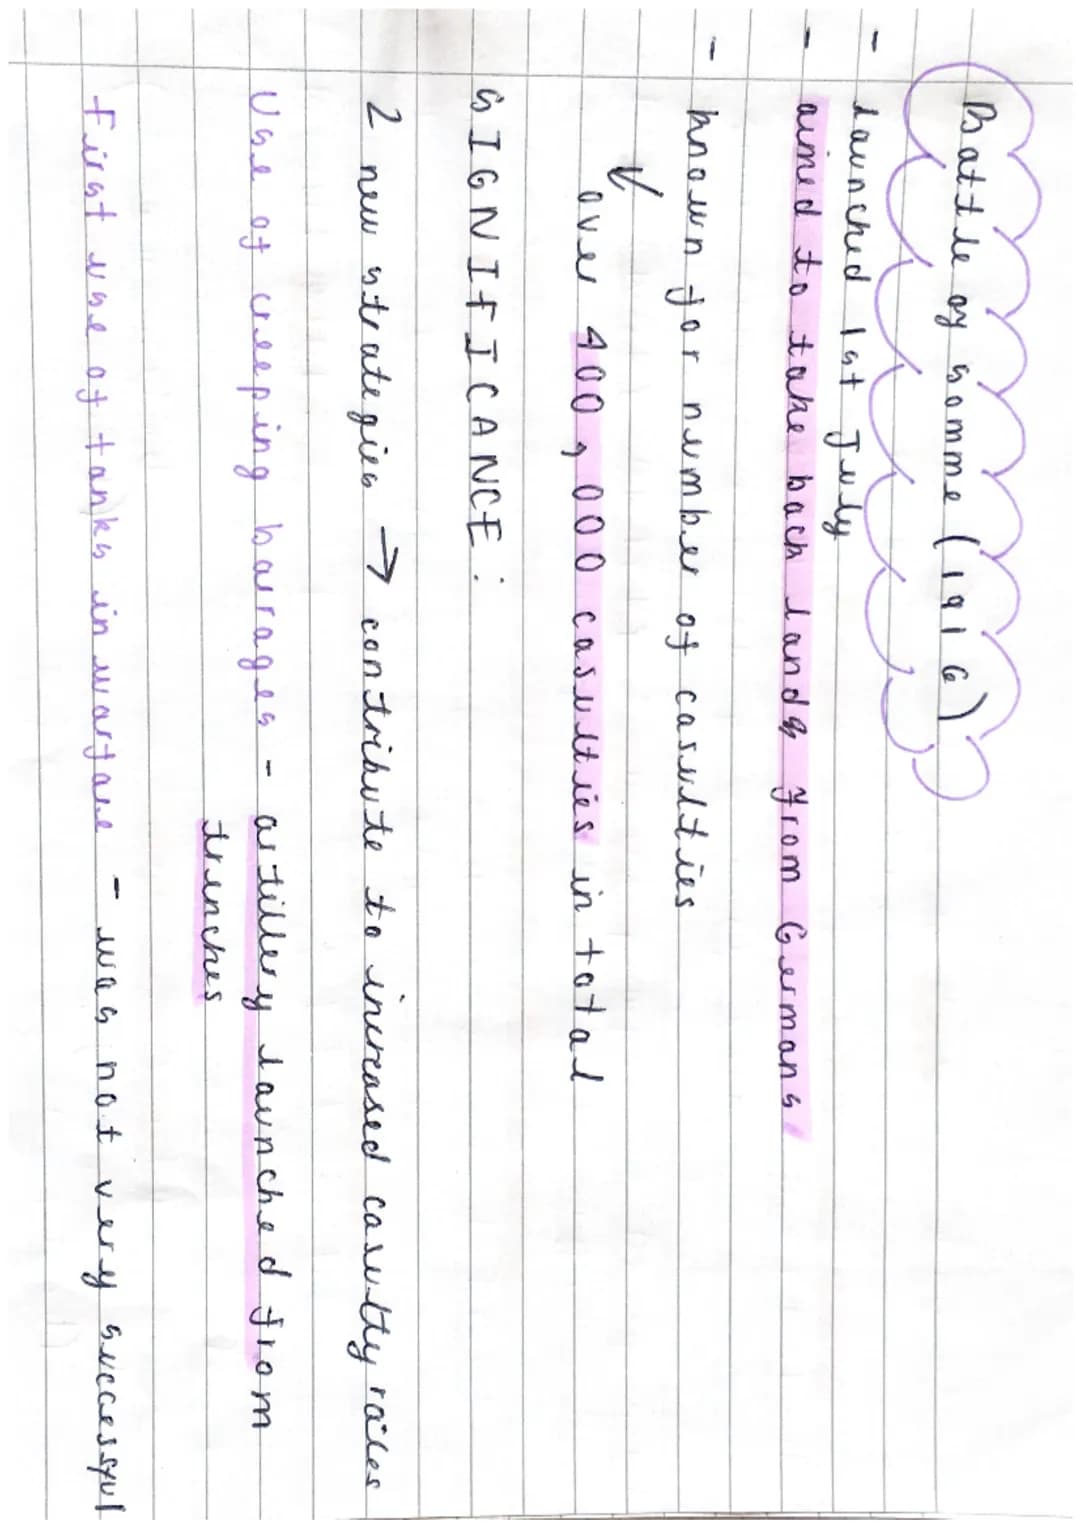 Battle of Somme (1916)
- launched 1st July
- aimed to take back lands from Germans
- known for number of casulties
↓ over 400,000 casulties in total
SIGNIFICANCE:
2 new strategies → contribute to increased casulty rates
Use of creeping barrages - artillery launched from
trenches
First use of tanks in warfare - was not very successful